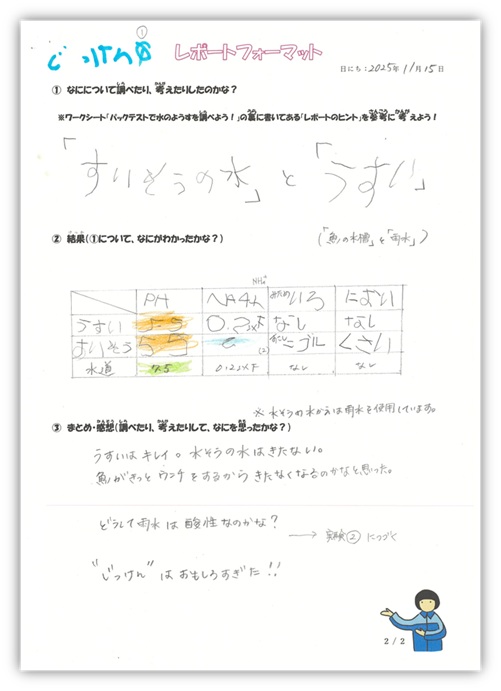 ①
じっけん
レポートフォーマット
日にち：2025年11月15日
① なにについて調べたり、考えたりしたのかな？
※ワークシート「パックテストで水のようすを調べよう！」の裏に書いてある「レポートのヒント」を参考に考えよう！
「すいそうの水」と「うすい」
（「魚の水槽」と「雨水」）
② 結果（①について、なにがわかったかな？）
NH₄⁺
PH みため いろ におい
うすい 5.5 0.2以下 なし なし
すいそう 5.5 (2) ニゴル くさい
水道 7.5 0.2以下 なし なし
※ 水そうの水かえは雨水を使用しています。
③ まとめ・感想（調べたり、考えたりして、なにを思ったかな？）
うすいはキレイ。水そうの水はきたない。
魚がきっとウンチをするからきたなくなるのかなと思った。
どうして雨水は酸性なのかな？
→ 実験②につづく
"じっけん"はおもしろすぎた!!
2 / 2